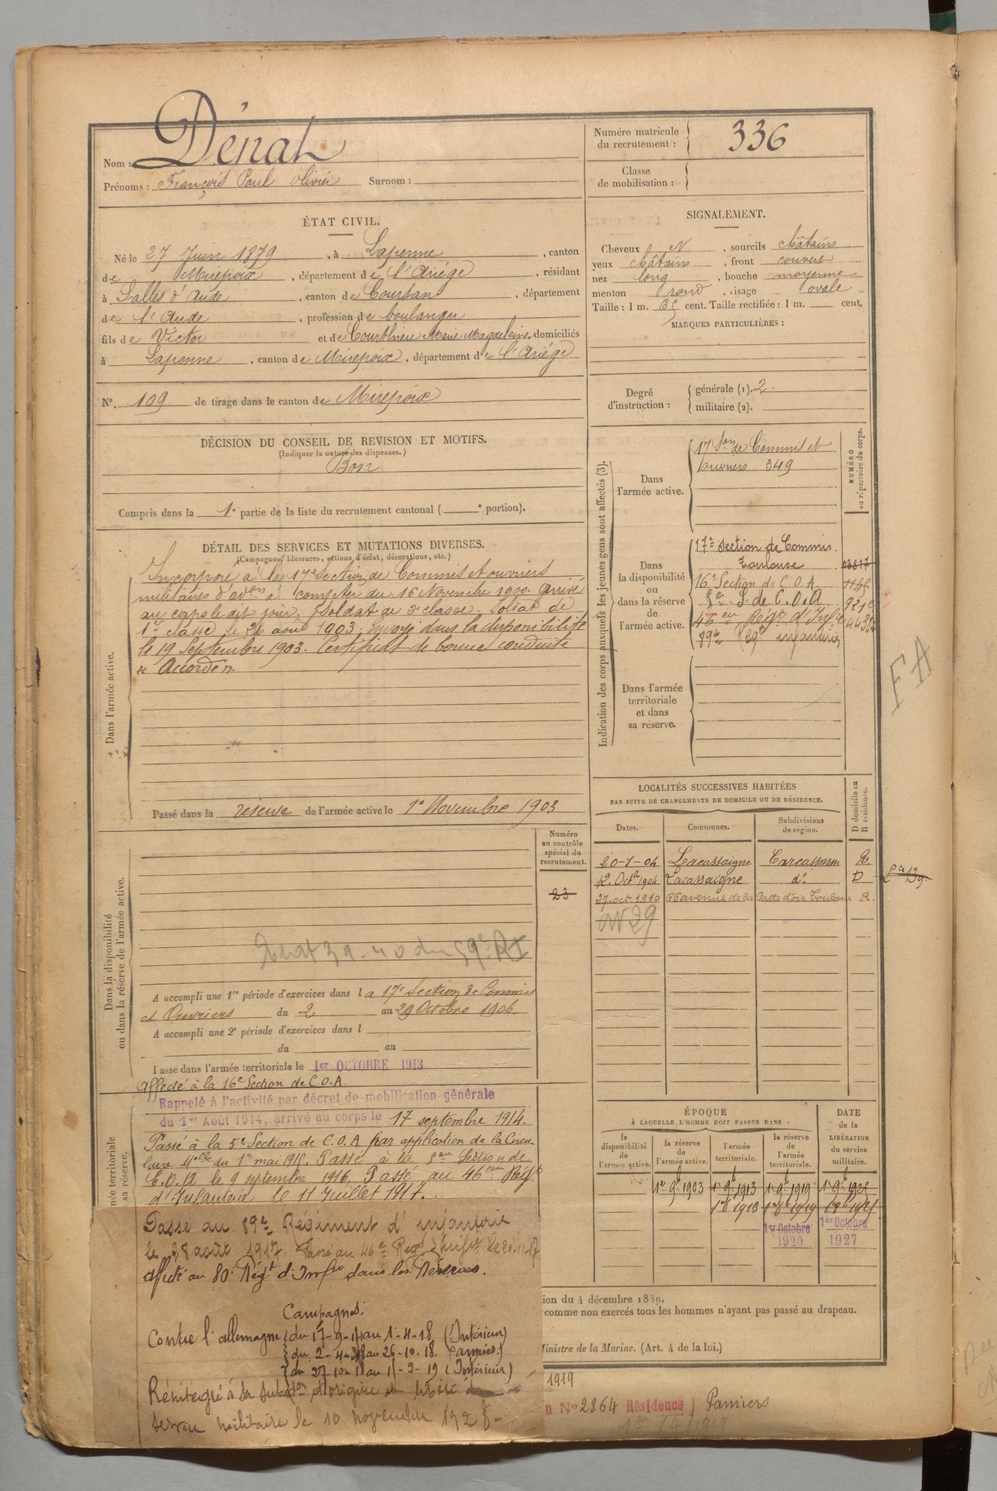 Nom : Dénat
Prénoms : François Paul Olivier Surnom :
ÉTAT CIVIL.
Né le 27 Juin 1879, à Lapenne, canton
de Mirepoix, département de l'Ariège, résidant
à Salles d'Aude, canton de Coursan, département
de l'Aude, profession de boulanger
fils de Victor et de Marie Magdeleine, domiciliés
à Lapenne, canton de Mirepoix, département de l'Ariège
N° 109 de tirage dans le canton de Mirepoix
DÉCISION DU CONSEIL DE REVISION ET MOTIFS.
(Indiquer la nature des dispenses.)
Bon
Compris dans la 1e partie de la liste du recrutement cantonal ( e portion).
DÉTAIL DES SERVICES ET MUTATIONS DIVERSES.
(Campagnes, blessures, actions d'éclat, décorations, etc.)
Dans l'armée active.
Incorporé à la 17e Section de Commis et ouvriers
militaires d'adon à compter du 16 Novembre 1900. Arrivé
au corps le dit jour, soldat de 2e classe. Soldat de
1re classe le 26 août 1903. Envoyé dans la disponibilité
le 19 Septembre 1903. Certificat de bonne conduite
"Accordé".
Passé dans la réserve de l'armée active le 1er Novembre 1903
Numéro
au contrôle
spécial du
recrutement.
23
Dans la disponibilité
ou dans la réserve de l'armée active.
A accompli une 1re période d'exercices dans la 17e Section de Commis
et Ouvriers du 2 au 29 Octobre 1906
A accompli une 2e période d'exercices dans l
du au
Passé dans l'armée territoriale le 1er OCTOBRE 1913
affecté à la 16e Section de C.O.A.
Rappelé à l'activité par décret de mobilisation générale
du 1er Août 1914, arrivé au corps le 17 septembre 1914.
Passé à la 5e Section de C.O.A par application de la Circu
laire Melle du 1er mai 1916. Passé à la Section de
C.O.A le 9 septembre 1916. Passé au 46eme Régt
d'Infanterie le 11 Juillet 1917.
Passé au 89e Régiment d'infanterie
le 28 août 1917. Passé au 46e Regt d'Infie le 20-11-17
affecté au 80e Régt d'Infie dans les Réserves.
Campagnes:
Contre l'allemagne du 17-9-14 au 1-4-18 (Intérieur)
du 2-4-18 au 26-10-18. (armées)
du 27-10-18 au 1-2-19 (Intérieur)
Réintégré à sa subdon d'origine
service militaire le 10 novembre 1928
Numéro matricule
du recrutement : 336
Classe
de mobilisation :
SIGNALEMENT.
Cheveux N, sourcils châtains
yeux châtains, front couvert
nez long, bouche moyenne
menton rond, visage ovale
Taille : 1 m. 65 cent. Taille rectifiée : 1 m. cent.
MARQUES PARTICULIÈRES :
Degré
d'instruction :
générale (1). 2
militaire (2).
Indication des corps auxquels les jeunes gens sont affectés (3).
NUMÉRO
au répertoire du corps.
Dans
l'armée active.
17 Son de Commis et
Ouvriers 349
Dans
la disponibilité
ou
dans la réserve de
l'armée active.
17e Section de Commis.
Toulouse
16e Section de C.O.A.
S. de C.O.A
46eme Régt d'Infie
89e Regt infanterie
Dans l'armée
territoriale
et dans
sa réserve.
FA
LOCALITÉS SUCCESSIVES HABITÉES
PAR SUITE DE CHANGEMENTS DE DOMICILE OU DE RÉSIDENCE.
D domicile ou
R résidence.
Dates. Communes. Subdivisions
de région.
20-1-04 Lacassaigne Carcassonne R
12 Octe 1904 Lacassaigne do D
27 oct. 1910 avenue de la Toulouse R.
No 29
ÉPOQUE
À LAQUELLE L'HOMME DOIT PASSER DANS :
DATE
de la
LIBÉRATION
du service
militaire.
la
disponibilité
de l'armée active.
la réserve
de
l'armée active.
l'armée
territoriale.
la réserve
de
l'armée
territoriale.
1er 9e 1903 1er 9e 1913 1er 9e 1919
1er 8e 1913 1er 8e 1919
1er Octobre 1920
1er Octobre 1927
ion du 4 décembre 1889.
comme non exercés tous les hommes n'ayant pas passé au drapeau.
Ministre de la Marine. (Art. 4 de la loi.)
1919
n No 2864 Résidence Pamiers